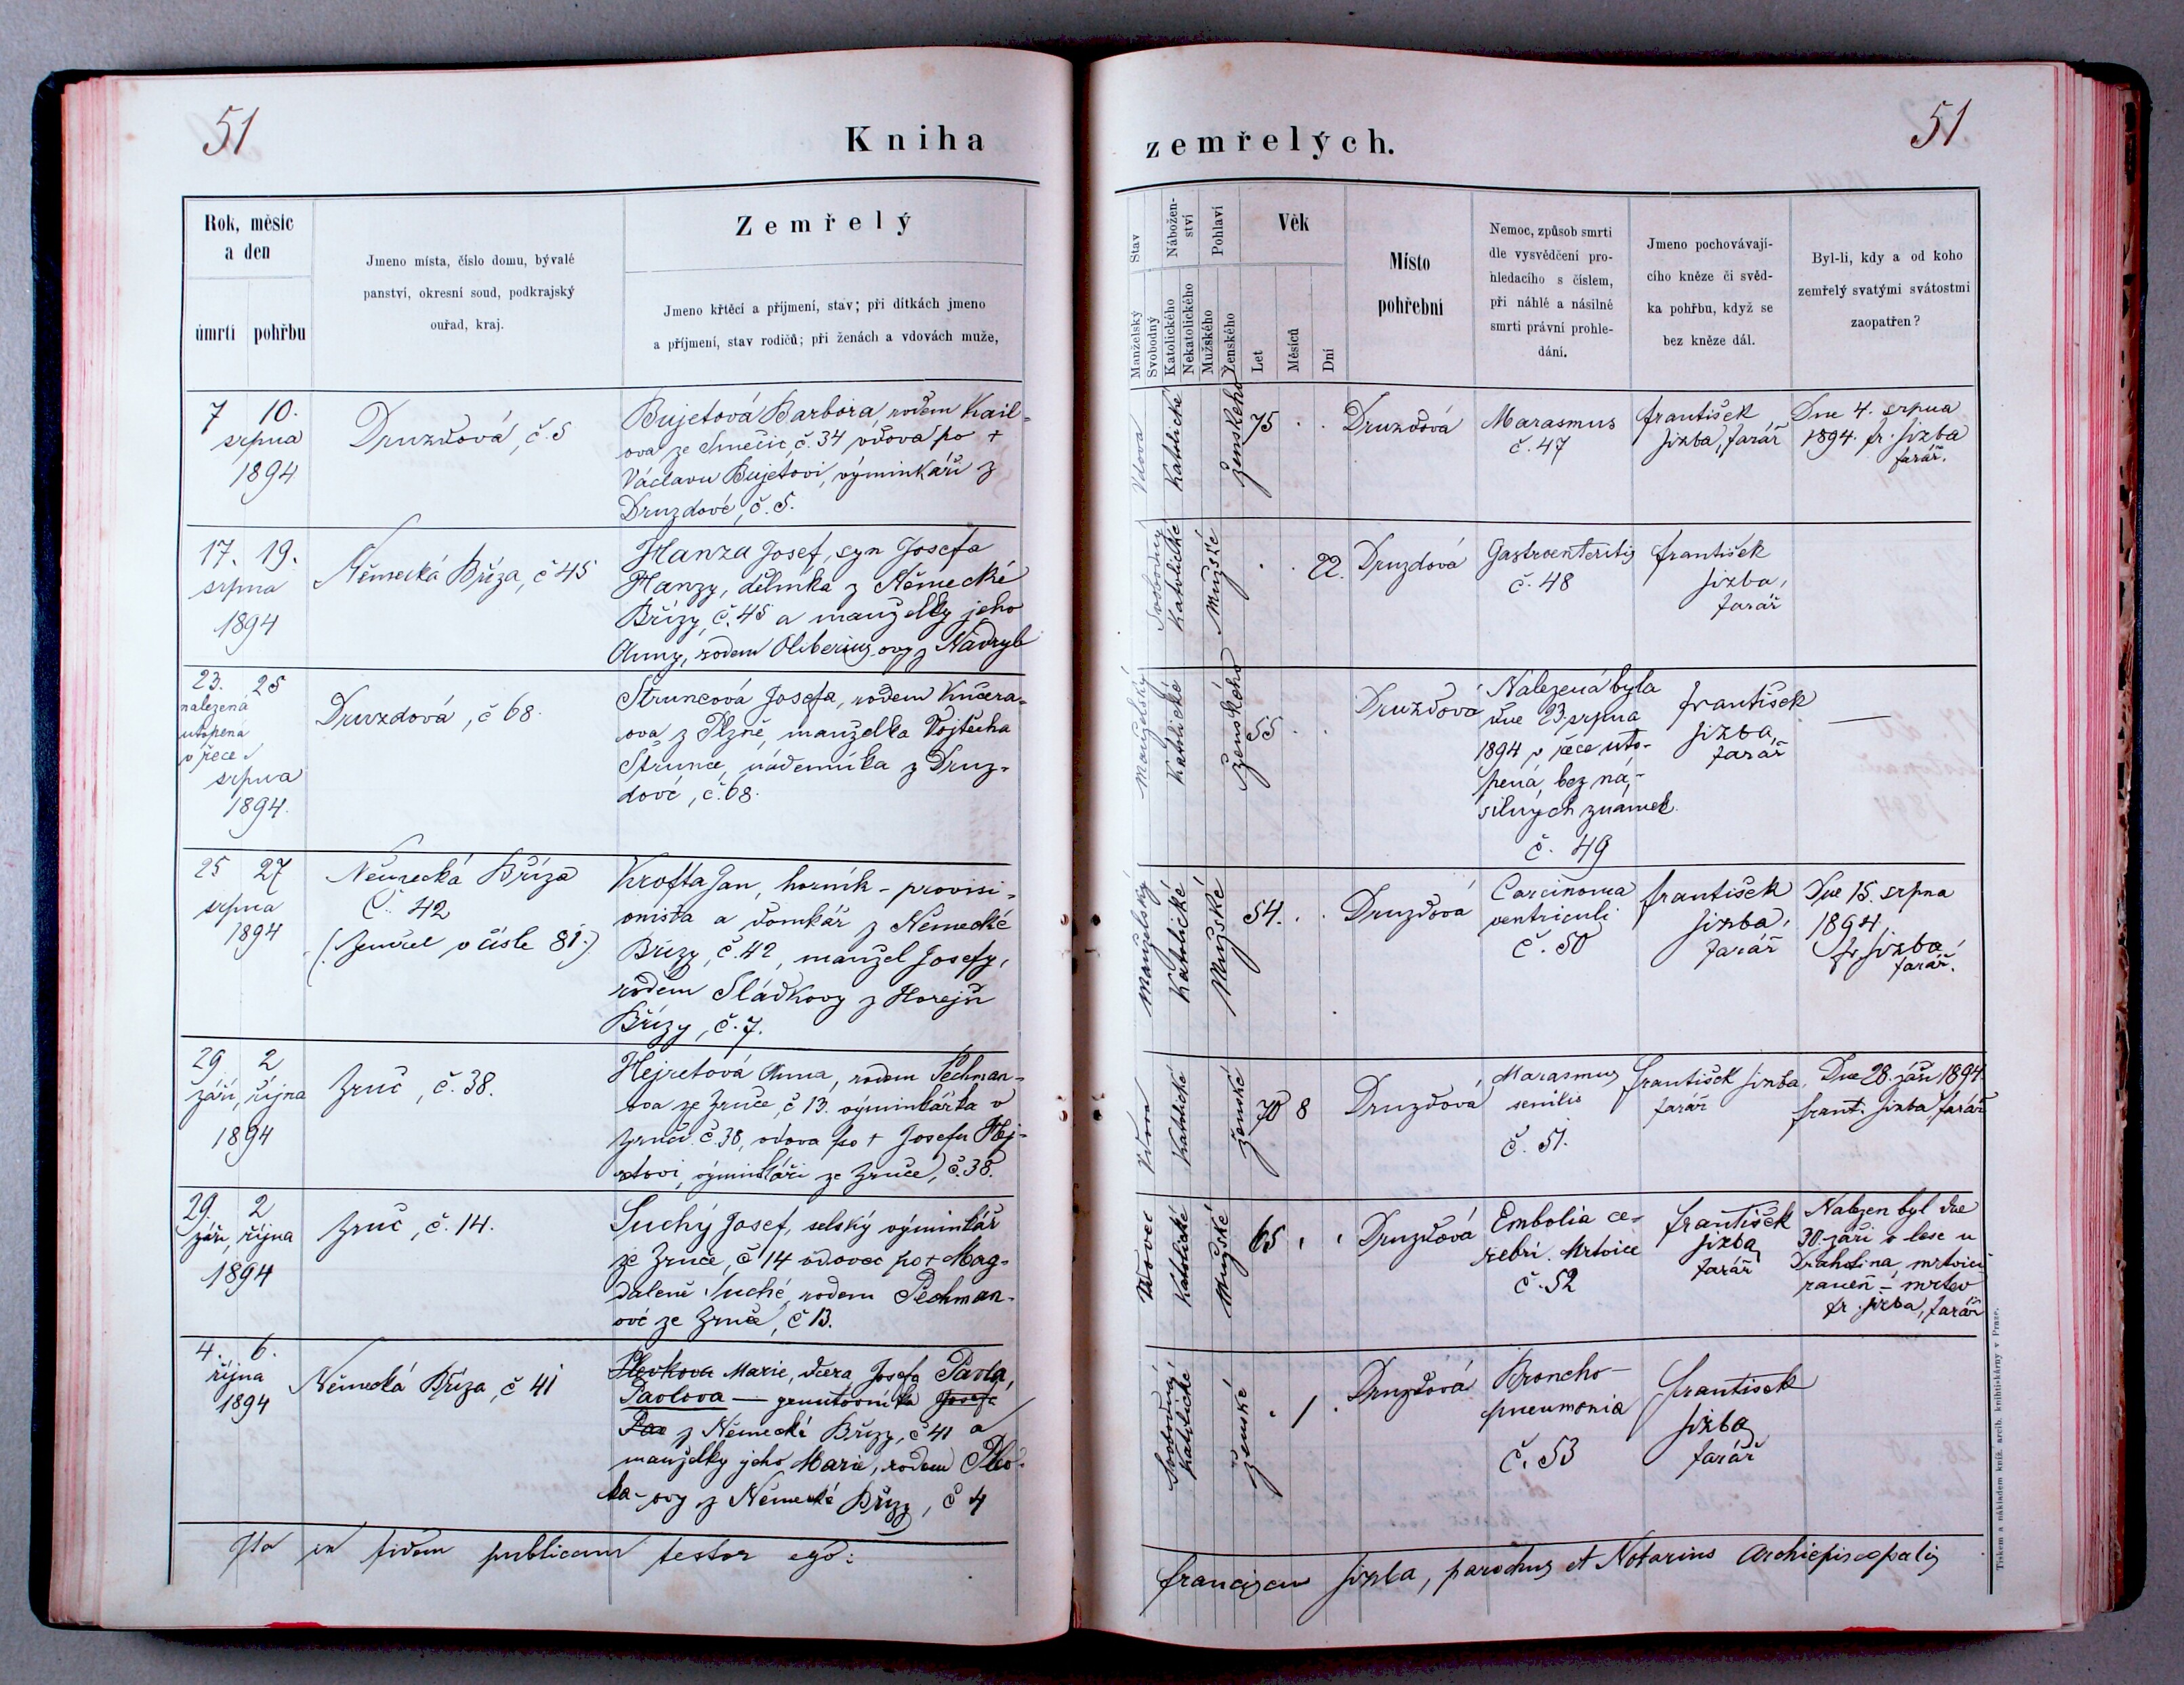 51
Kniha
zemřelých.
51
Rok, měsíc
a den
úmrtí
pohřbu
Jmeno místa, číslo domu, bývalé
panství, okresní soud, podkrajský
ouřad, kraj.
Zemřelý
Jmeno křtěcí a příjmení, stav; při dítkách jmeno
a příjmení, stav rodičů; při ženách a vdovách muže,
Stav
Manželský
Svobodný
Nábožen-
ství
Katolického
Nekatolického
Pohlaví
Mužského
Ženského
Věk
Let
Měsíců
Dní
Místo
pohřební
Nemoc, způsob smrti
dle vysvědčení pro-
hledacího s číslem,
při náhlé a násilné
smrti právní prohle-
dání.
Jmeno pochovávají-
cího kněze či svěd-
ka pohřbu, když se
bez kněze dál.
Byl-li, kdy a od koho
zemřelý svatými svátostmi
zaopatřen?
7 10.
srpna
1894
Druzdová, č. 5
Bujetová Barbora, rodem Kail-
ova ze Smečic, č. 34 vdova po +
Václavu Bujetovi, výminkáři z
Druzdové, č. 5.
Vdova
Katolické
Ženského
75
Druzdová
Marasmus
č. 47
František
Jizba, farář
Dne 4. srpna
1894. fr. Jizba
farář.
17. 19.
srpna
1894
Německá Bříza, č 45
Hanza Josef, syn Josefa
Hanzy, dělníka z Německé
Břízy, č. 45 a manželky jeho
Anny, rodem Oliberius-ovy z Nadryb
Svobodný
Katolické
Mužské
22.
Druzdová
Gastroenteritis
č. 48
František
Jizba,
farář
23. 25
nalezená
utopená
v řece
srpna
1894.
Druzdová, č 68.
Struncová Josefa, rodem Kučera-
ova z Plzně, manželka Vojtěcha
Strunce, nádenníka z Druz-
dové, č. 68.
Manželský
Katolické
Ženského
55
Druzdová
Nalezená byla
dne 23. srpna
1894 v řece uto-
pená, bez ná-
silných známek.
č. 49
František
Jizba,
farář
—
25 27
srpna
1894
Německá Bříza
č. 42
(: zemřel v čísle 81 :)
Krofta Jan, horník - provisi-
onista a domkář z Německé
Břízy, č. 42, manžel Josefy,
rodem Sládkovy z Horejší
Břízy, č. 7.
Manželský
Katolické
Mužské
54.
Druzdová
Carcinoma
ventriculi
č. 50
František
Jizba,
farář
Dne 15. srpna
1894
Fr. Jizba,
farář.
29 2
září, října
1894
Zruč, č. 38.
Hejretová Anna, rodem Pechman-
ova ze Zruče, č 13. výminkářka v
Zruči č. 38, vdova po + Josefu Hej-
retovi, výminkáři ze Zruče, č. 38.
Vdova
Katolické
ženské
70 8
Druzdová
Marasmus
senilis
č. 51.
František Jizba,
farář
Dne 28. září 1894.
frant. Jizba farář
29. 2
září, října
1894
Zruč, č. 14.
Suchý Josef, selský výminkář
ze Zruče, č 14 vdovec po + Mag-
daleně Suché, rodem Pechman-
ové ze Zruče, č 13.
Vdovec
Katolické
Mužské
65
Druzdová
Embolia ce-
rebri. Mrtvice
č. 52
František
Jizba
farář
Nalezen byl dne
30. září v lese u
Drahotina, mrtvicí
raněn - mrtev
fr. Jizba, farář
4. 6.
října
1894
Německá Bříza, č 41
Marie, dcera Josefa Pavla,
Pavlova — gruntovníka Josefa
Pav z Německé Břízy, č 41 a
manželky jeho Marie, rodem Plev-
ka-ovy z Německé Břízy, č 4
Svobodný
Katolické
ženské
1
Druzdová
Broncho-
pneumonia
č. 53
František
Jizba
farář
Ita in fidem publicam testor ego:
Franciscus Jizba, parochus et Notarius Archiepiscopalis
Tiskem a nákladem kníž. arcib. knihtiskárny v Praze.